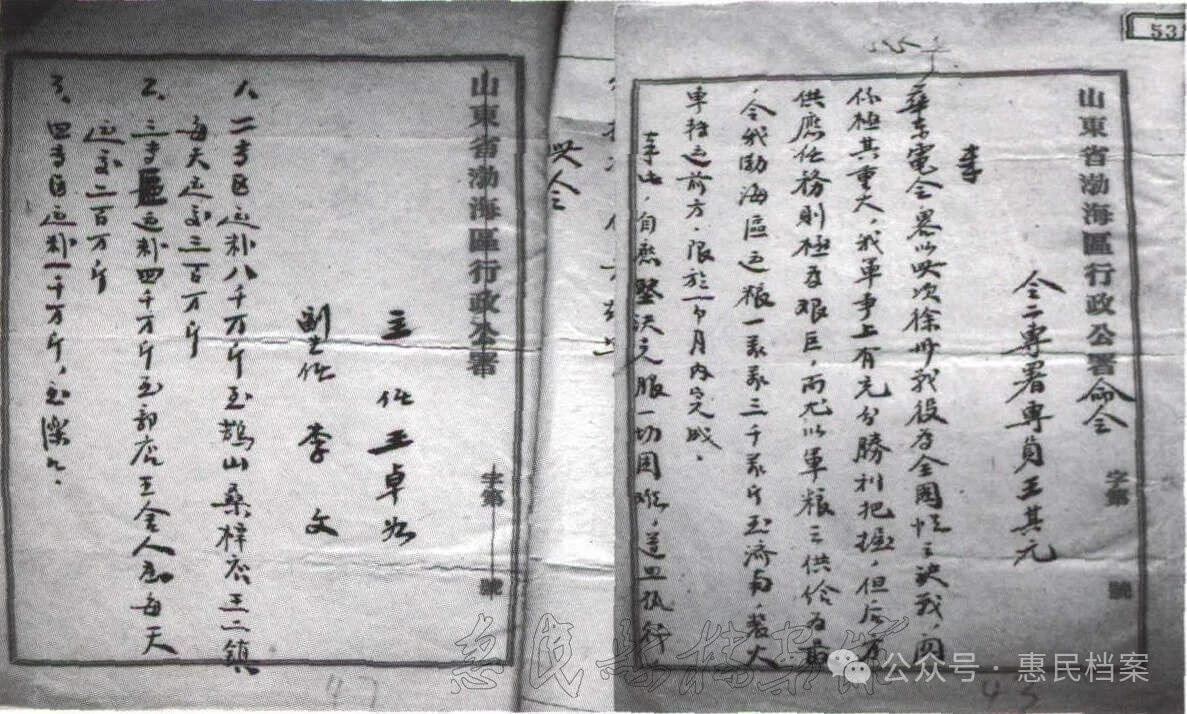 531
山東省渤海區行政公署命令 字第 號
令二專署專員王其元
奉
華东電令畧以此次徐州戰役为全國性之決戰，関
係極其重大，我軍事上有充分勝利把握，但后方
供應任務則極为艰巨，而尤以軍粮之供给为最
，令我渤海區运粮一萬萬三千萬斤至濟南，裝火
車轉运前方，限於一个月内完成。
奉此，自應堅決克服一切困难，遵照执行
此令
山東省渤海區行政公署 字第 號
主任王卓如
副主任 李文
1、二专区运补八千万斤至鵲山桑梓店 二鎮
每天运交三百万斤
2、三专區运补四千万斤至郭店王舍人庄每天
运交二百万斤
3、四专区运补一千万斤，至濼口。
47
45
惠民县档案馆
公众号·惠民档案